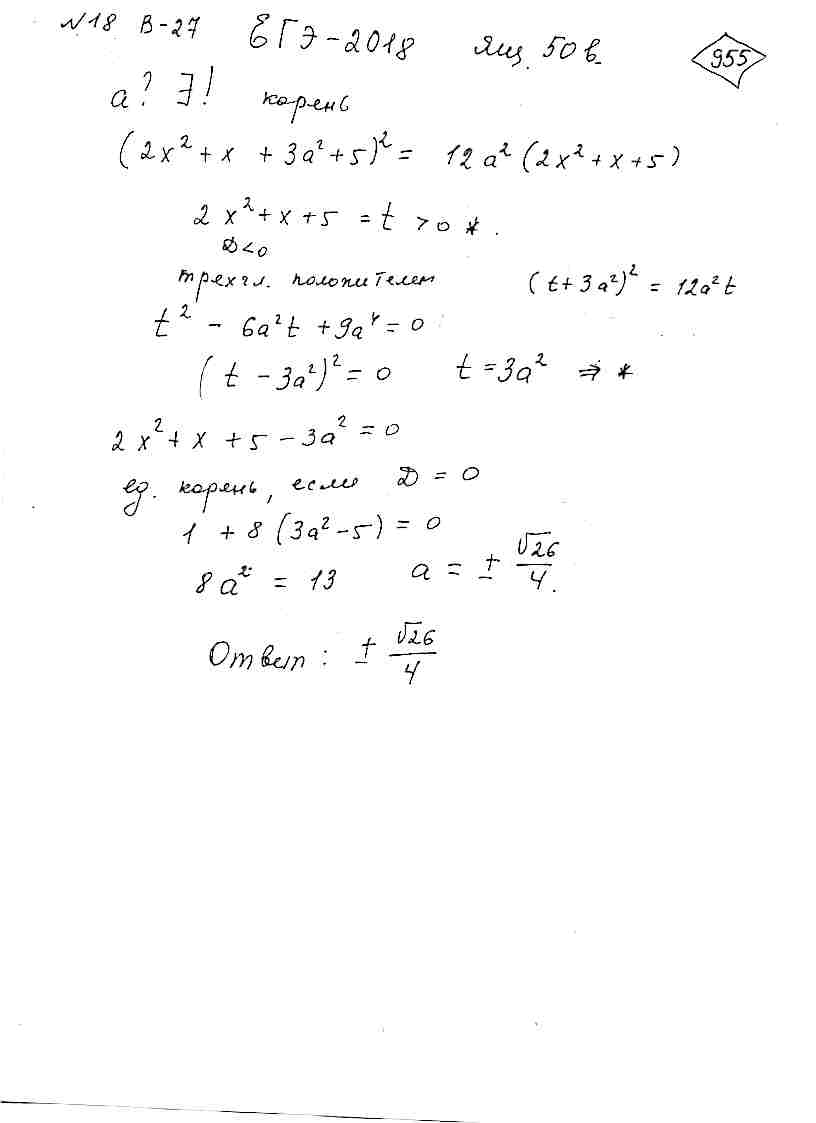 №18 В-27 ЕГЭ-2018 Ящ. 50 в. 955
a? ∃! корень
(2x² + x + 3a² + 5)² = 12a² (2x² + x + 5)
2x² + x + 5 = t > 0 *.
D < 0
трехчл. положителен (t + 3a²)² = 12a²t
t² - 6a²t + 9a⁴ = 0
(t - 3a²)² = 0 t = 3a² ⇒ *
2x² + x + 5 - 3a² = 0
ед. корень, если D = 0
1 + 8 (3a² - 5) = 0
8a² = 13 a = ± √26/4.
Ответ: ± √26/4